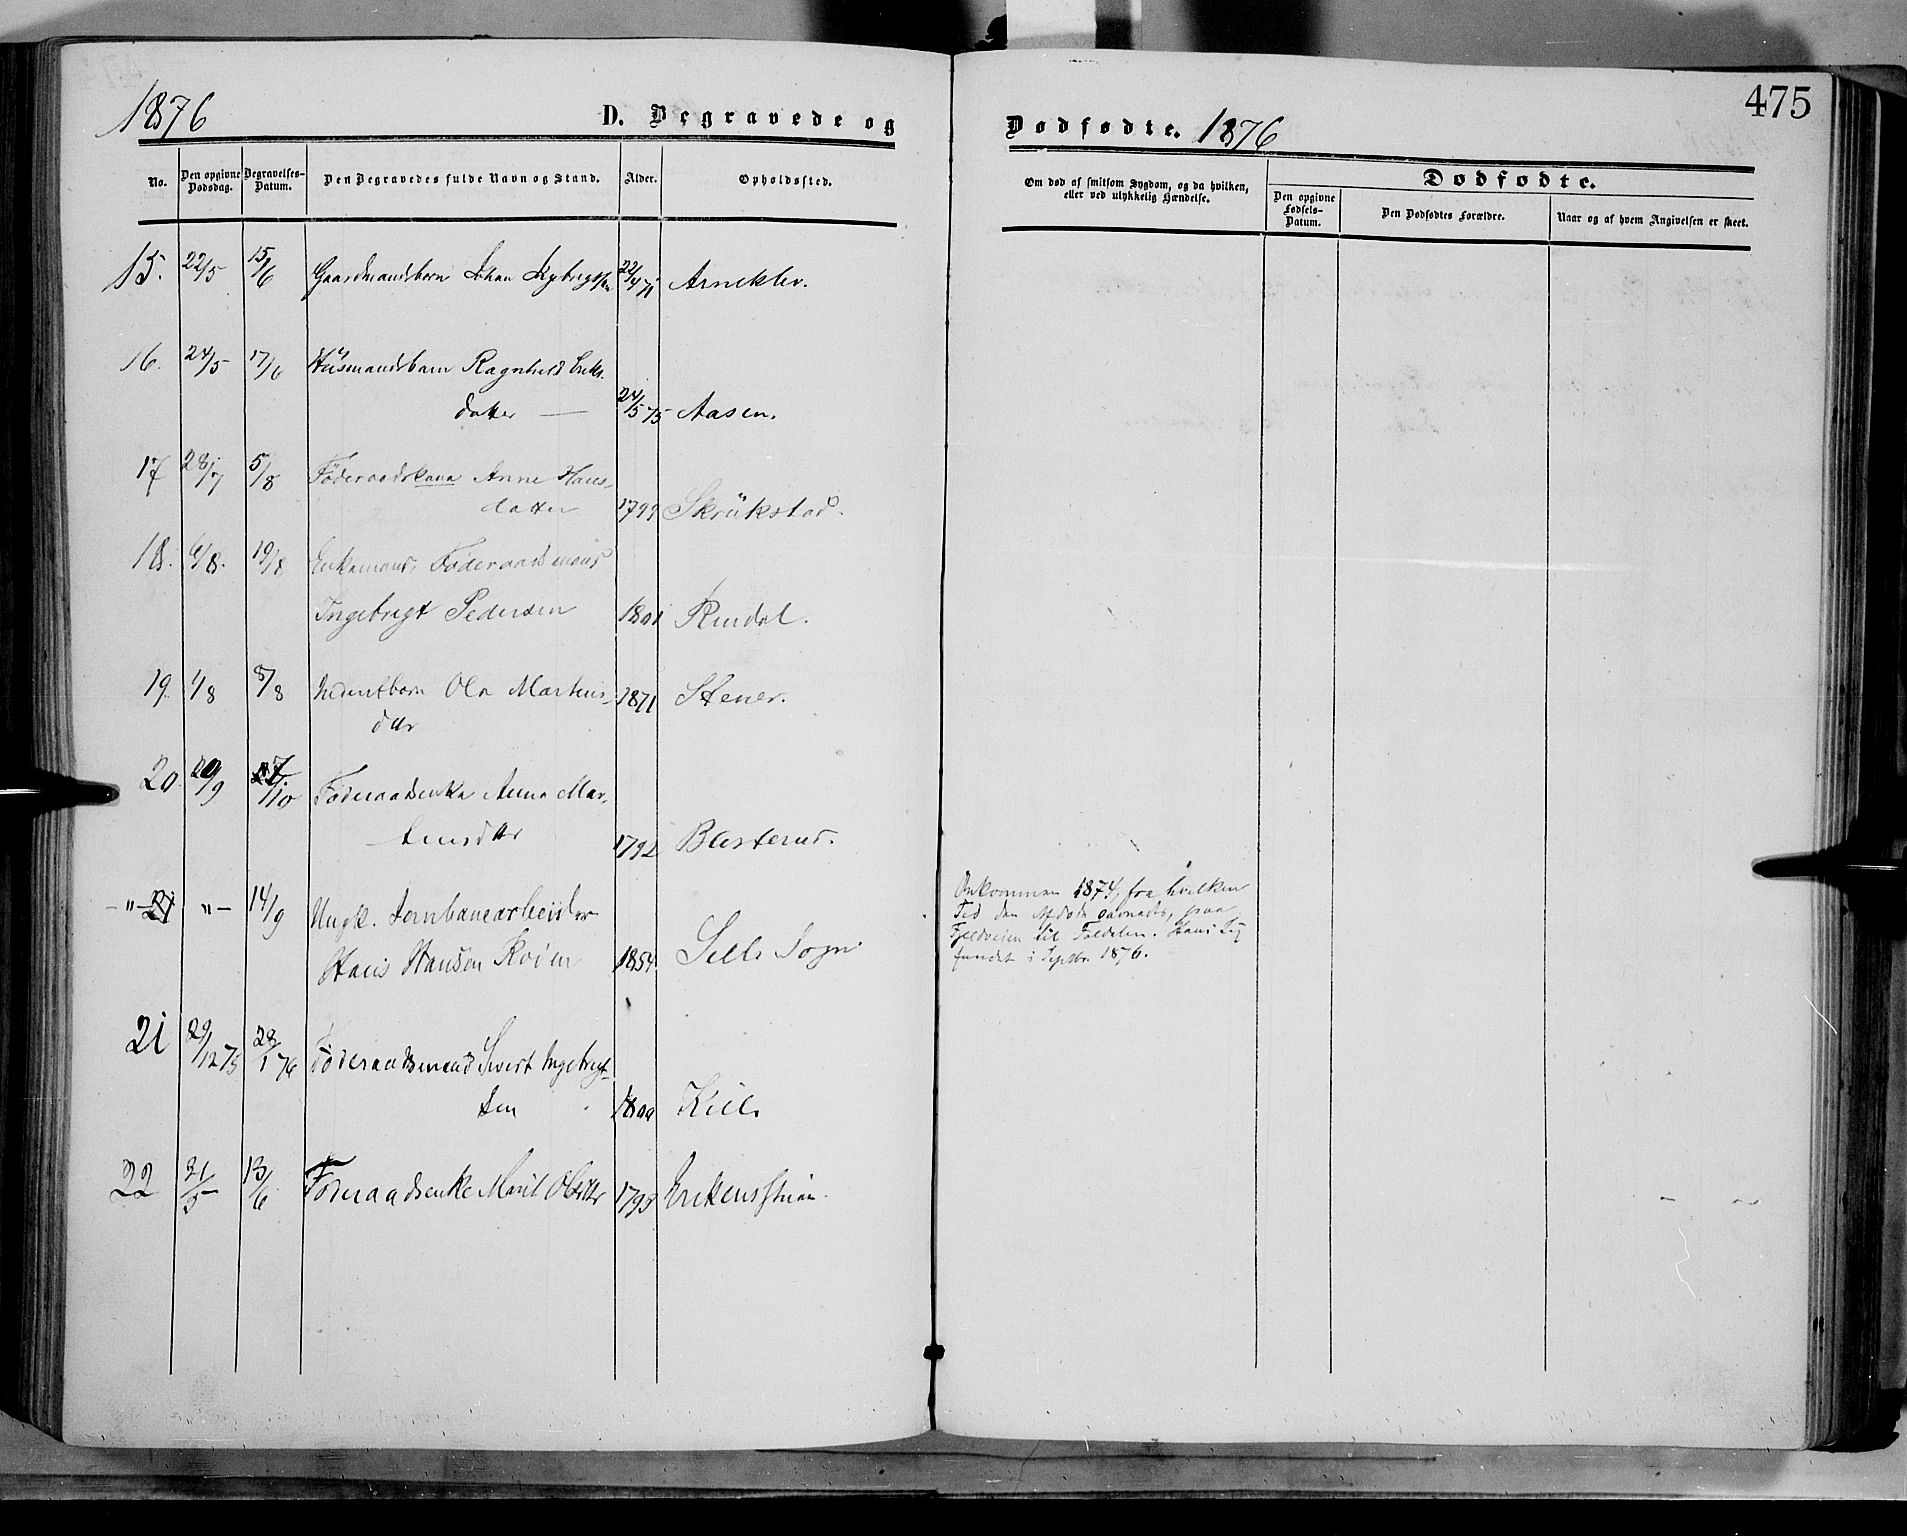 1876
D. Begravede og
No.
Den opgivne Dødsdag.
Begravelses-Datum.
Den Begravedes fulde Navn og Stand.
Alder.
Opholdssted.
15. 22/5 15/6 Gaardmandsbarn Johan 22/4 71 Arneklev.
16. 24/5 17/6 Husmandsbarn Ragnhild Eriks-
datter — 24/5 75 Aasen.
17 28/7 5/8 Føderaadskone Anne Hans-
datter 1799 Skrükstad.
18. 6/8. 19/8 Enkemand, Føderaadsmand
Ingebrigt Pedersen 1801 Rindal.
19. 1/8 8/8 Inderstbarn Ola Martins-
dtr 1871 Stener.
20 29/9 7/10 Føderaadsenke Anne Mar-
tinsdtr 1792 Blesterud.
–"– 21 "– 14/9 Ungk. Jernbanearbeider
Hans Hansen Roden 1854 Sells Sogn
21 29/12 75 28/1 76 Føderaadsmand Sivert Ingebrigt-
sen 1800 Kiell.
22 21/5 13/6 Føderaadsenke Marit Olsdtr 1793
475
Dødfødte. 1876
Om død af smitsom Sygdom, og da hvilken,
eller ved ulykkelig Hændelse.
Dødfødte.
Den opgivne Fødsels-Datum.
Den Dødfødtes Forældre.
Naar og af hvem Angivelsen er skeet.
Omkommen 1874, fra hvilken
Tid den Afdøde savnedes, paa
Fjeldveien til Foldalen. Hans Lig
fundet i Septbr. 1876.